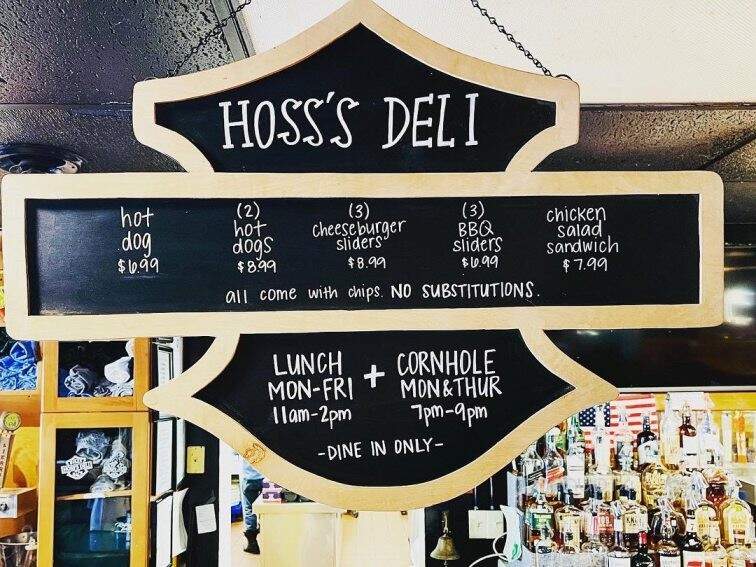 HOSS'S DELI
hot
dog
$6.99
(2)
hot
dogs
$8.99
(3)
cheeseburger
sliders
$8.99
(3)
BBQ
sliders
$6.99
chicken
salad
sandwich
$7.99
all come with chips. NO SUBSTITUTIONS.
LUNCH
MON-FRI
11am-2pm
+
CORNHOLE
MON & THUR
7pm-9pm
-DINE IN ONLY-